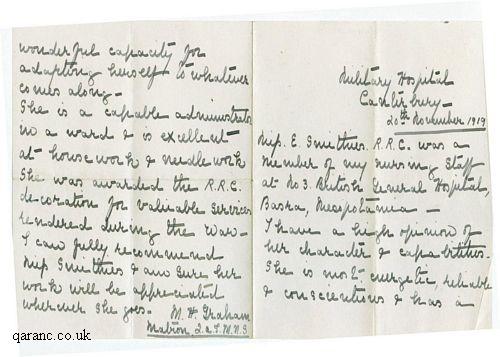 Military Hospital
Canterbury -
20th November 1919
Miss E. Smithies. R.R.C. was a
member of my nursing staff
at No 3. British General Hospital,
Basra, Mesopotamia -
I have a high opinion of
her character & capabilities.
She is most energetic, reliable
& conscientious & has a
wonderful capacity for
adapting herself to whatever
comes along -
She is a capable administrator
in a ward & is excellent
at housework & needlework
She was awarded the R.R.C.
decoration for valuable services
rendered during the War -
I can fully recommend
Miss Smithies & am sure her
work will be appreciated
wherever she goes.
M. H. Graham
Matron, Q.A.I.M.N.S
qaranc.co.uk